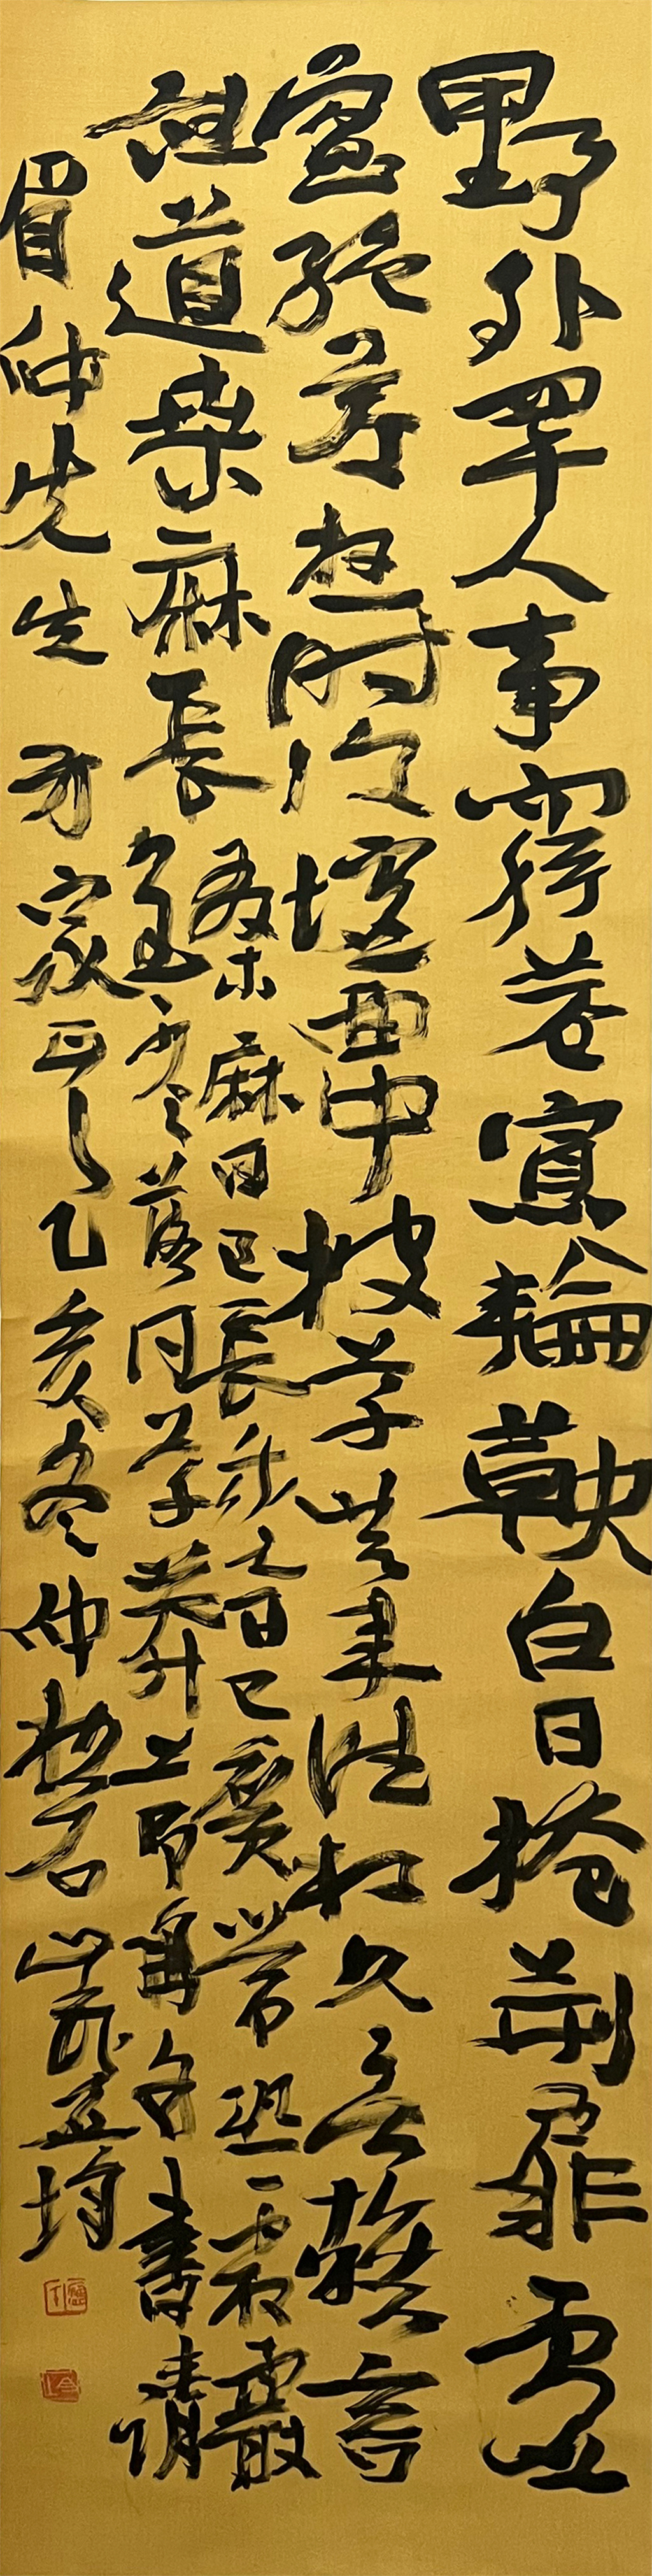 野外罕人事窮巷寡輪鞅白日掩荊扉虛
室絕塵想時復墟曲中披草共來往相見無雜言
但道桑麻長
桑麻日已長我土日已廣常恐霜霰
至零落同草莽 書請
眉仲先生 方家正之乙亥冬仲